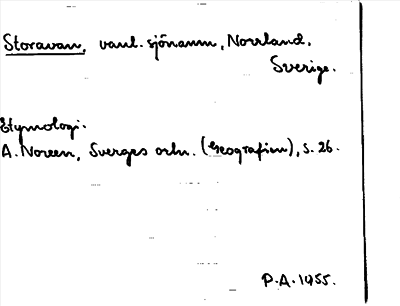 Storavan, vanl. sjönamn, Norrland,
Sverige.
Etymologi.
A. Noreen, Sverges ortn. (Geografien), s. 26.
P.A. 1955.